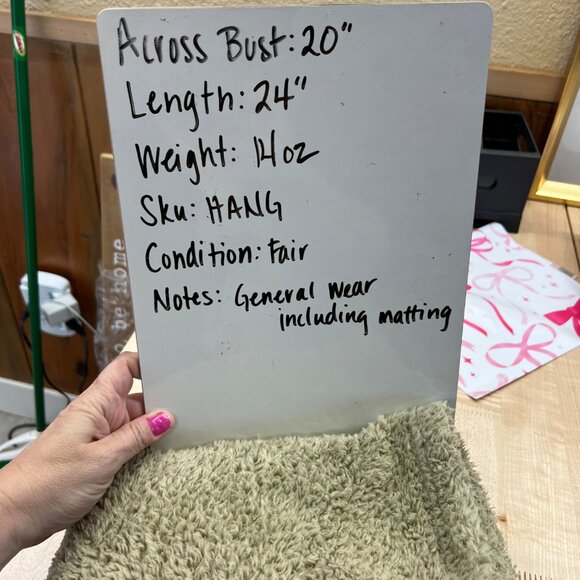 Across Bust: 20"
Length: 24"
Weight: 14 oz
Sku: HANG
Condition: Fair
Notes: General wear
including matting
to be home